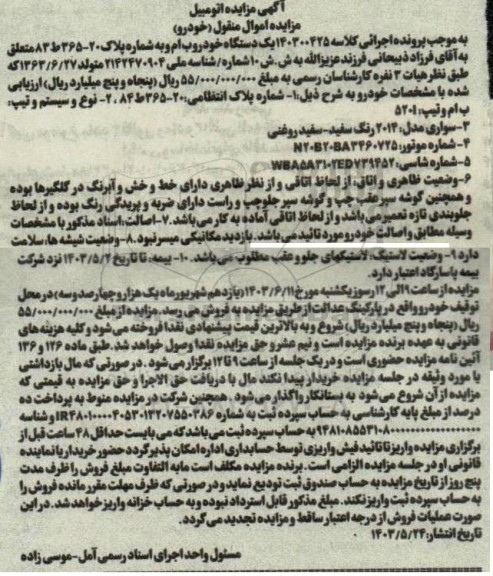 آگهی مزایده اتومبیل
مزایده اموال منقول (خودرو)
به موجب پرونده اجرائی کلاسه ۱۴۰۳۰۰۴۲۵ یک دستگاه خودرو ب ام و به شماره پلاک ۲۰-۳۶۵ط۸۳ متعلق
به آقای فرزاد ذبیحانی فرزند عزیزاله به ش.ش ۱۰ شماره/شناسه ملی ۲۱۴۲۴۷۰۹۰۴ متولد ۱۳۶۳/۶/۲۷ که
طبق نظر هیات ۳ نفره کارشناسان رسمی به مبلغ ۵۵/۰۰۰/۰۰۰/۰۰۰ ریال (پنجاه و پنج میلیارد ریال) ارزیابی
شده با مشخصات خودرو به شرح ذیل:۱- شماره پلاک انتظامی:۲۰-۳۶۵ط۸۴ ۲- نوع و سیستم و تیپ:
ب ام و تیپ: ۵۲۰I
۳-سواری مدل: ۲۰۱۴ رنگ سفید-سفید روغنی
۴-شماره موتور: N۲۰B۲۰BA۳۴۶۰۷۲۵
۵-شماره شاسی: WBA۵A۳۱۰۲ED۷۳۹۴۵۲
۶-وضعیت ظاهری و اتاق: از لحاظ اتاقی و از نظر ظاهری دارای خط و خش و آبرنگ در گلگیرها بوده
و همچنین گوشه سپر عقب چپ و گوشه سپر جلوچپ و راست دارای ضربه و پریدگی رنگ بوده و از لحاظ
جلوبندی تازه تعمیر می باشد و از لحاظ اتاقی آماده به کار می باشد. ۷-اصالت: اسناد مذکور با مشخصات
وسیله مطابق و اصالت خودرو مورد تائید می باشد. بازدید مکانیکی میسر نبود. ۸-وضعیت شیشه ها: سلامت
دارد ۹- وضعیت لاستیک: لاستیکهای جلو و عقب مطلوب می باشد. ۱۰- بیمه: تا تاریخ ۱۴۰۳/۵/۲ نزد شرکت
بیمه پاسارگاد اعتبار دارد.
مزایده از ساعت ۹ الی ۱۲ روز یکشنبه مورخ ۱۴۰۳/۶/۱۱ (یازدهم شهریورماه یک هزار و چهارصد و سه) در محل
توقیف خودرو واقع در پارکینگ عدالت از طریق مزایده به فروش می رسد. مزایده از مبلغ ۵۵/۰۰۰/۰۰۰/۰۰۰
ریال (پنجاه و پنج میلیارد ریال) شروع و به بالاترین قیمت پیشنهادی نقدا فروخته می شود و کلیه هزینه های
قانونی به عهده برنده مزایده است و نیم عشر و حق مزایده نقدا وصول خواهد شد. طبق ماده ۱۲۶ و ۱۳۶
آئین نامه مزایده حضوری است و در یک جلسه از ساعت ۹ تا ۱۲ برگزار می شود. در صورتی که مال بازداشتی
یا مورد وثیقه در جلسه مزایده خریدار پیدا نکند مال با دریافت حق الاجرا و حق مزایده به قیمتی که
مزایده از آن شروع می شود به بستانکار واگذار می شود. همچنین شرکت در مزایده منوط به پرداخت ده
درصد از مبلغ پایه کارشناسی به حساب سپرده ثبت به شماره و شناسه
به حساب سپرده ثبت می باشد که می بایست حداقل ۴۸ ساعت قبل از
برگزاری مزایده واریز تا تائید فیش واریزی توسط حسابداری اداره امکان پذیر گردد حضور خریدار یا نماینده
قانونی او در جلسه مزایده الزامی است. برنده مزایده مکلف است مابه التفاوت مبلغ فروش را ظرف مدت
پنج روز از تاریخ مزایده به حساب صندوق ثبت تودیع نماید و در صورتی که ظرف مهلت مقرر مانده فروش را
به حساب سپرده ثبت واریز نکند. مبلغ مذکور قابل استرداد نبوده و به حساب خزانه واریز خواهد شد. در این
صورت عملیات فروش از درجه اعتبار ساقط و مزایده تجدید می گردد.
تاریخ انتشار: ۱۴۰۳/۵/۲۴
مسئول واحد اجرای اسناد رسمی آمل-موسی زاده